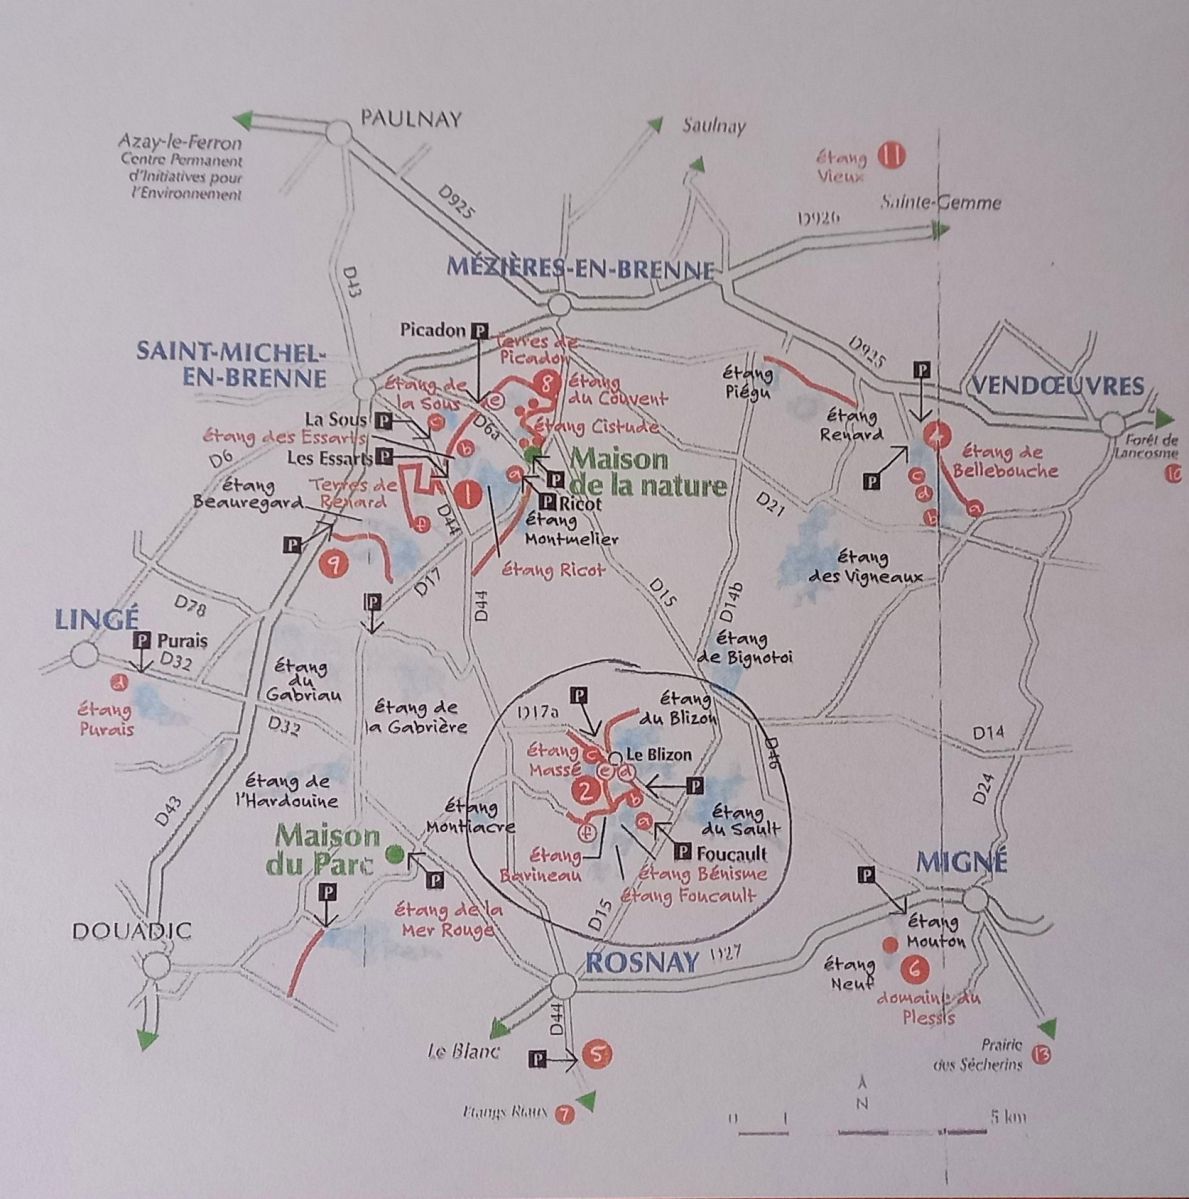 PAULNAY
Azay-le-Ferron
Centre Permanent
d'Initiatives pour
l'Environnement
Saulnay
étang
Vieux
11
Sainte-Gemme
D925
D926
D43
MÉZIÈRES-EN-BRENNE
Picadon P
Terres de
Picadon
SAINT-MICHEL-
EN-BRENNE
D925
P
VENDŒUVRES
étang
Piégu
étang de
la Sous
e
8
étang
du Couvent
La Sous P
c
D6a
étang Cistude
étang
Renard
4
étang de
Bellebouche
Forêt de
Lancosme
10
étang des Essarts
b
Les Essarts P
D6
Maison
de la nature
a
P
P Ricot
P
c
d
b
a
étang
Beauregard
Terres de
Renard
1
f
D44
étang
Montmelier
D21
P
9
étang Ricot
étang
des Vigneaux
D17
D78
P
D44
D15
D14b
LINGÉ
P Purais
D32
étang
de Bignotoi
d
étang
Purais
étang
du
Gabriau
étang de
la Gabrière
D32
P
étang
du Blizon
D17a
étang
Massé
c
Le Blizon
e
d
D46
D14
étang de
l'Hardouine
2
b
P
D24
D43
étang
Montiacre
f
a
étang
du Sault
Maison
du Parc
P
P Foucault
étang
Barineau
étang Bénisme
étang Foucault
MIGNÉ
P
P
étang de la
Mer Rouge
D15
étang
Mouton
DOUADIC
ROSNAY
D27
étang
Neuf
6
domaine du
Plessis
D44
Le Blanc
P
5
Prairie
des Sécherins
13
Etangs Riaux 7
N
0
1
5 km